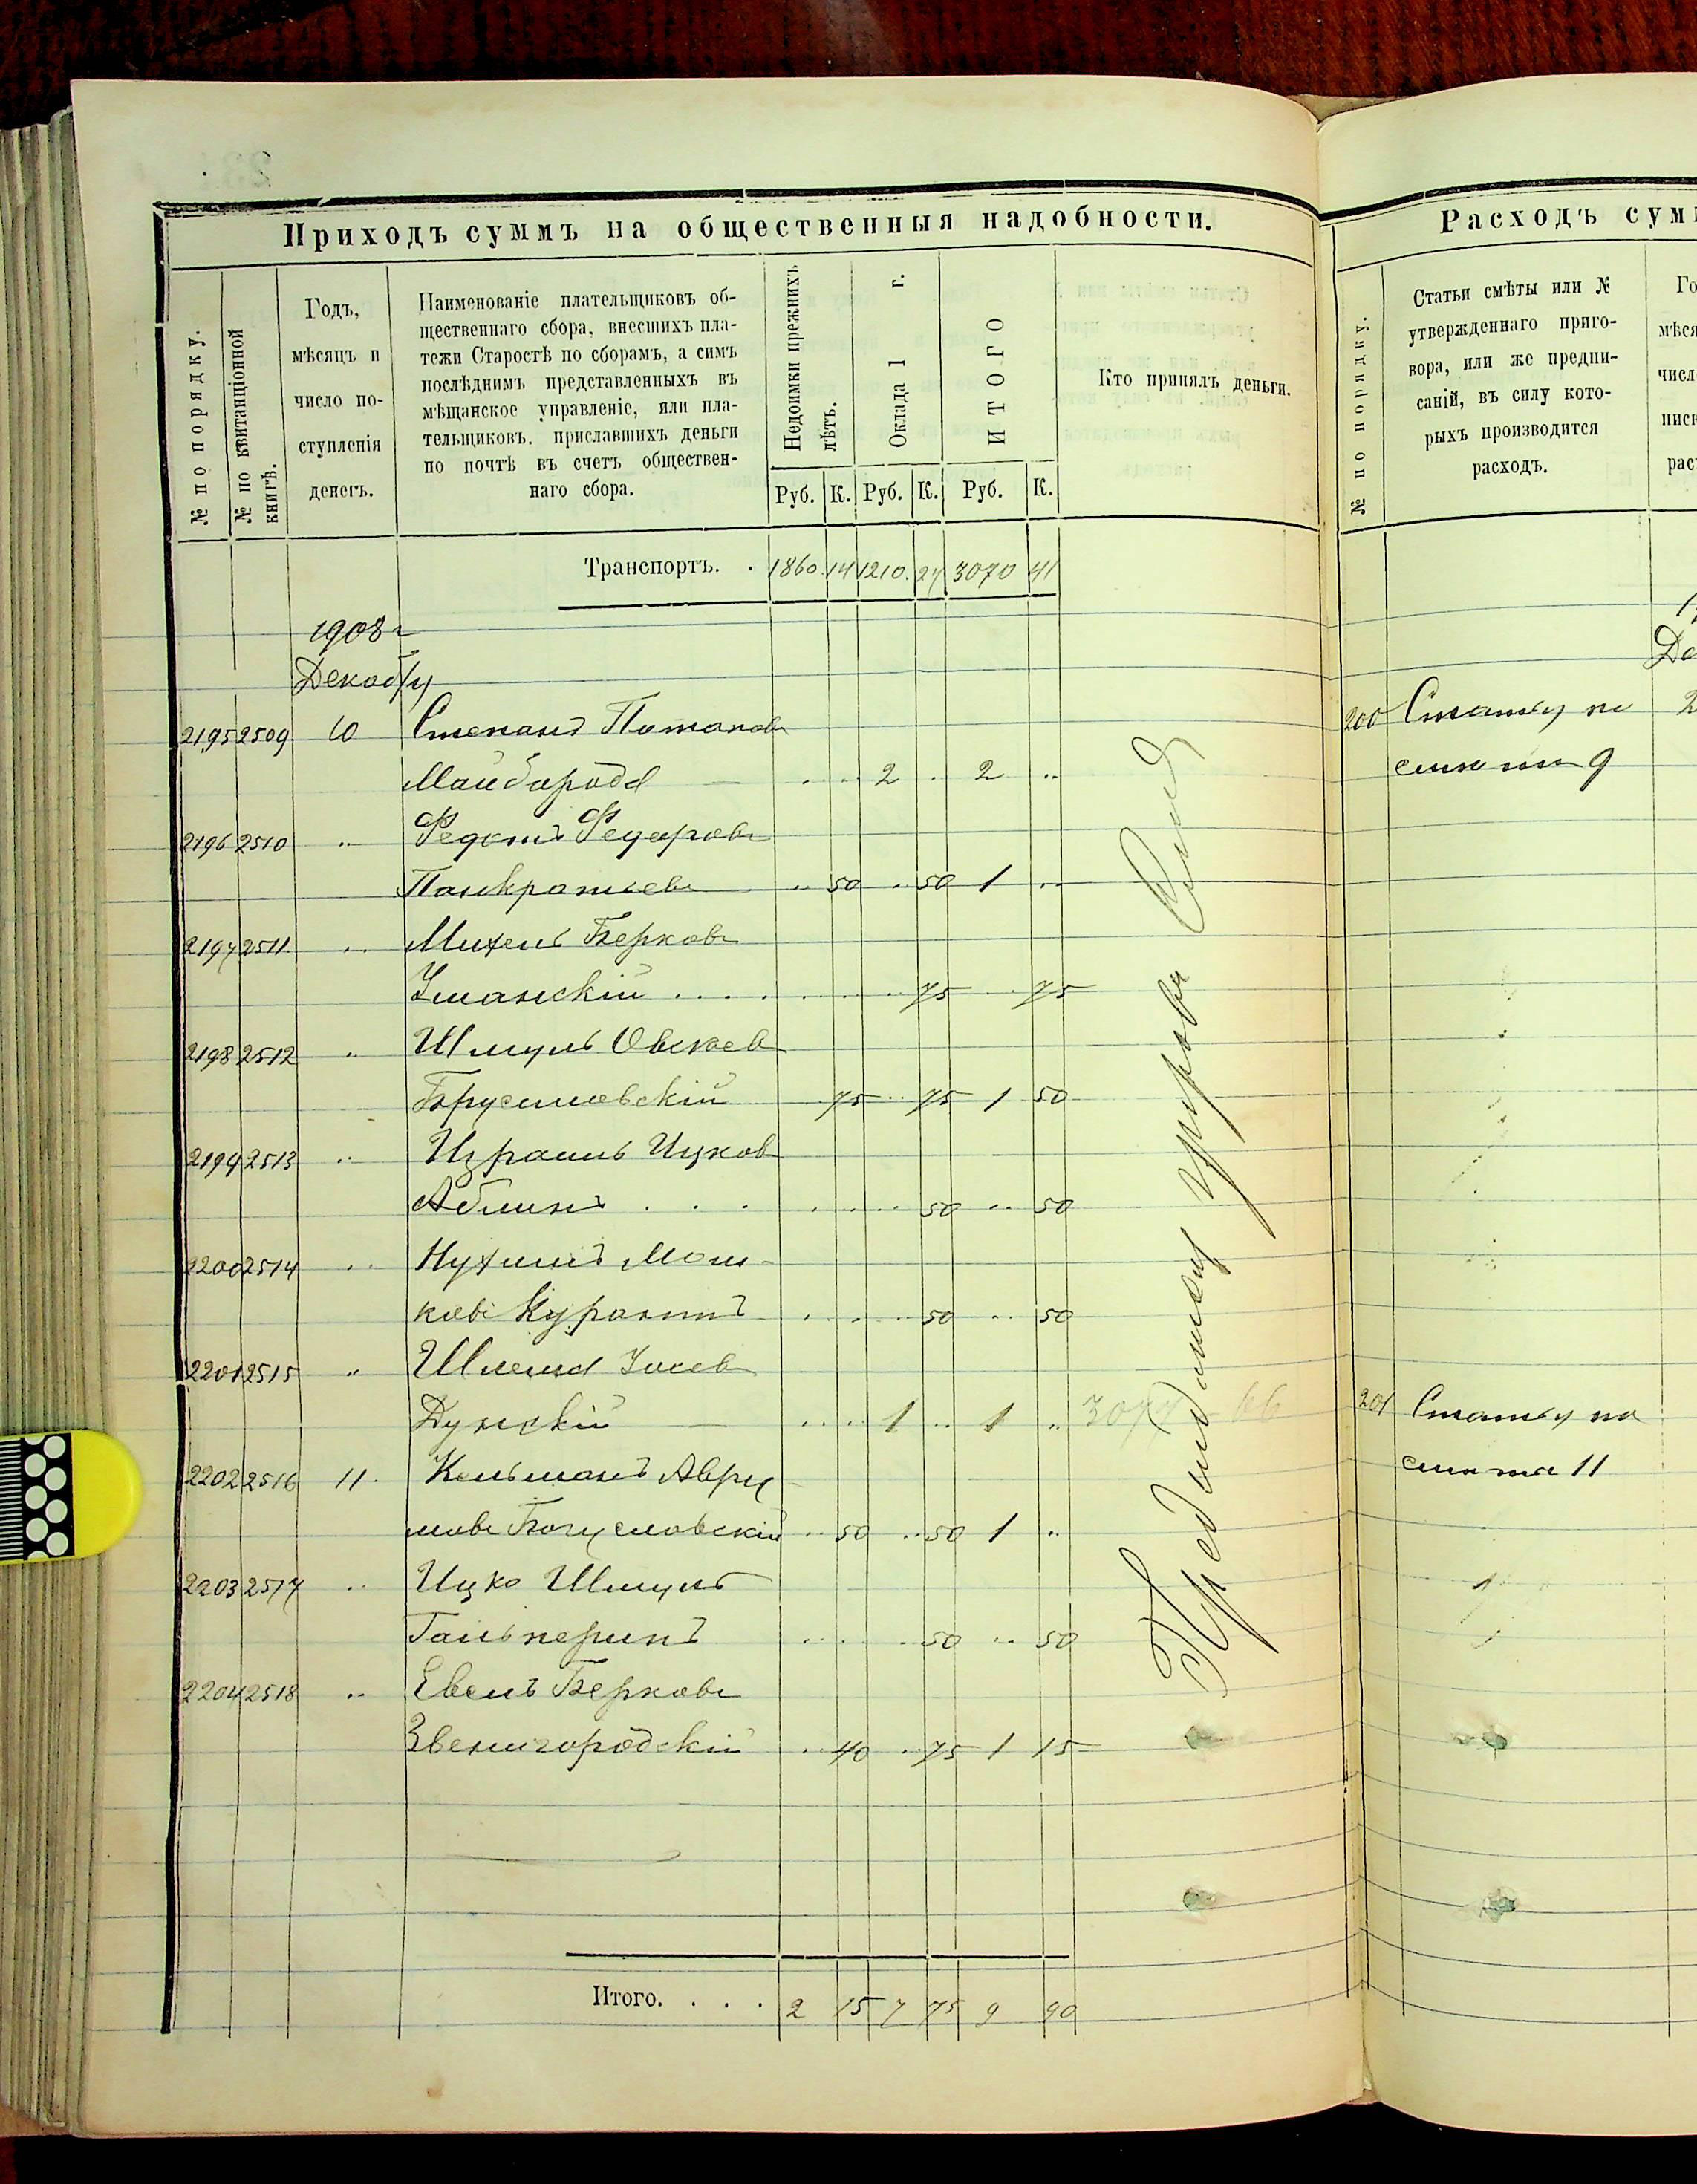 Приходъ суммъ на общественныя надобности.
№ по порядку.
№ по квитанціонной
книгѣ.
Годъ,
мѣсяцъ и
число по-
ступленія
денегъ.
Наименованіе плательщиковъ об-
щественнаго сбора, внесшихъ пла-
тежи Старостѣ по сборамъ, а симъ
послѣднимъ представленныхъ въ
мѣщанское управленіе, или пла-
тельщиковъ, приславшихъ деньги
по почтѣ въ счетъ обществен-
наго сбора.
Недоимки прежнихъ
лѣтъ.
Оклада 1 г.
ИТОГО
Руб. К. Руб. К. Руб. К.
Кто принялъ деньги.
Транспортъ. . 1860 14 1210. 27 3070 41
1908 г
Декабрь
2195 2509 10 Степанъ Потаповъ
Майборода .... 2 . 2 ..
2196 2510 .. Федотъ Федоровъ
Панкратьевъ .. 50 .. 50 1 ..
2197 2511. .. Михель Берковъ
Уманскій .... 75 .. 75
2198 2512 .. Шмуль Овсеевъ
Брусиловскій 75 .. 75 1 50
2199 2513 .. Израиль Ицков
Аблинъ . . . . . . . 50 .. 50
2200 2514 .. Нухимъ Мош-
ковъ Курантъ . . . . 50 .. 50
2201 2515 .. Шлема Іосев
Дунскій .... 1 .. 1 ..
2202 2516 11. Кельманъ Авру
мовъ Богуславскій .. 50 .. 50 1 ..
2203 2517 .. Ицко Шмуль
Гальперинъ .... 50 .. 50
2204 2518 .. Евель Берковъ
Звенигородскій .. 40 .. 75 1 15
Итого. . . . 2 15 7 75 9 90
Расходъ сум
№ по порядку.
Статьи смѣты или №
утвержденнаго приго-
вора, или же предпи-
саній, въ силу кото-
рыхъ производится
расходъ.
Го
мѣся
числ
писк
рас
200 Статьи по
смѣты 9
201 Статьи по
смѣте 11